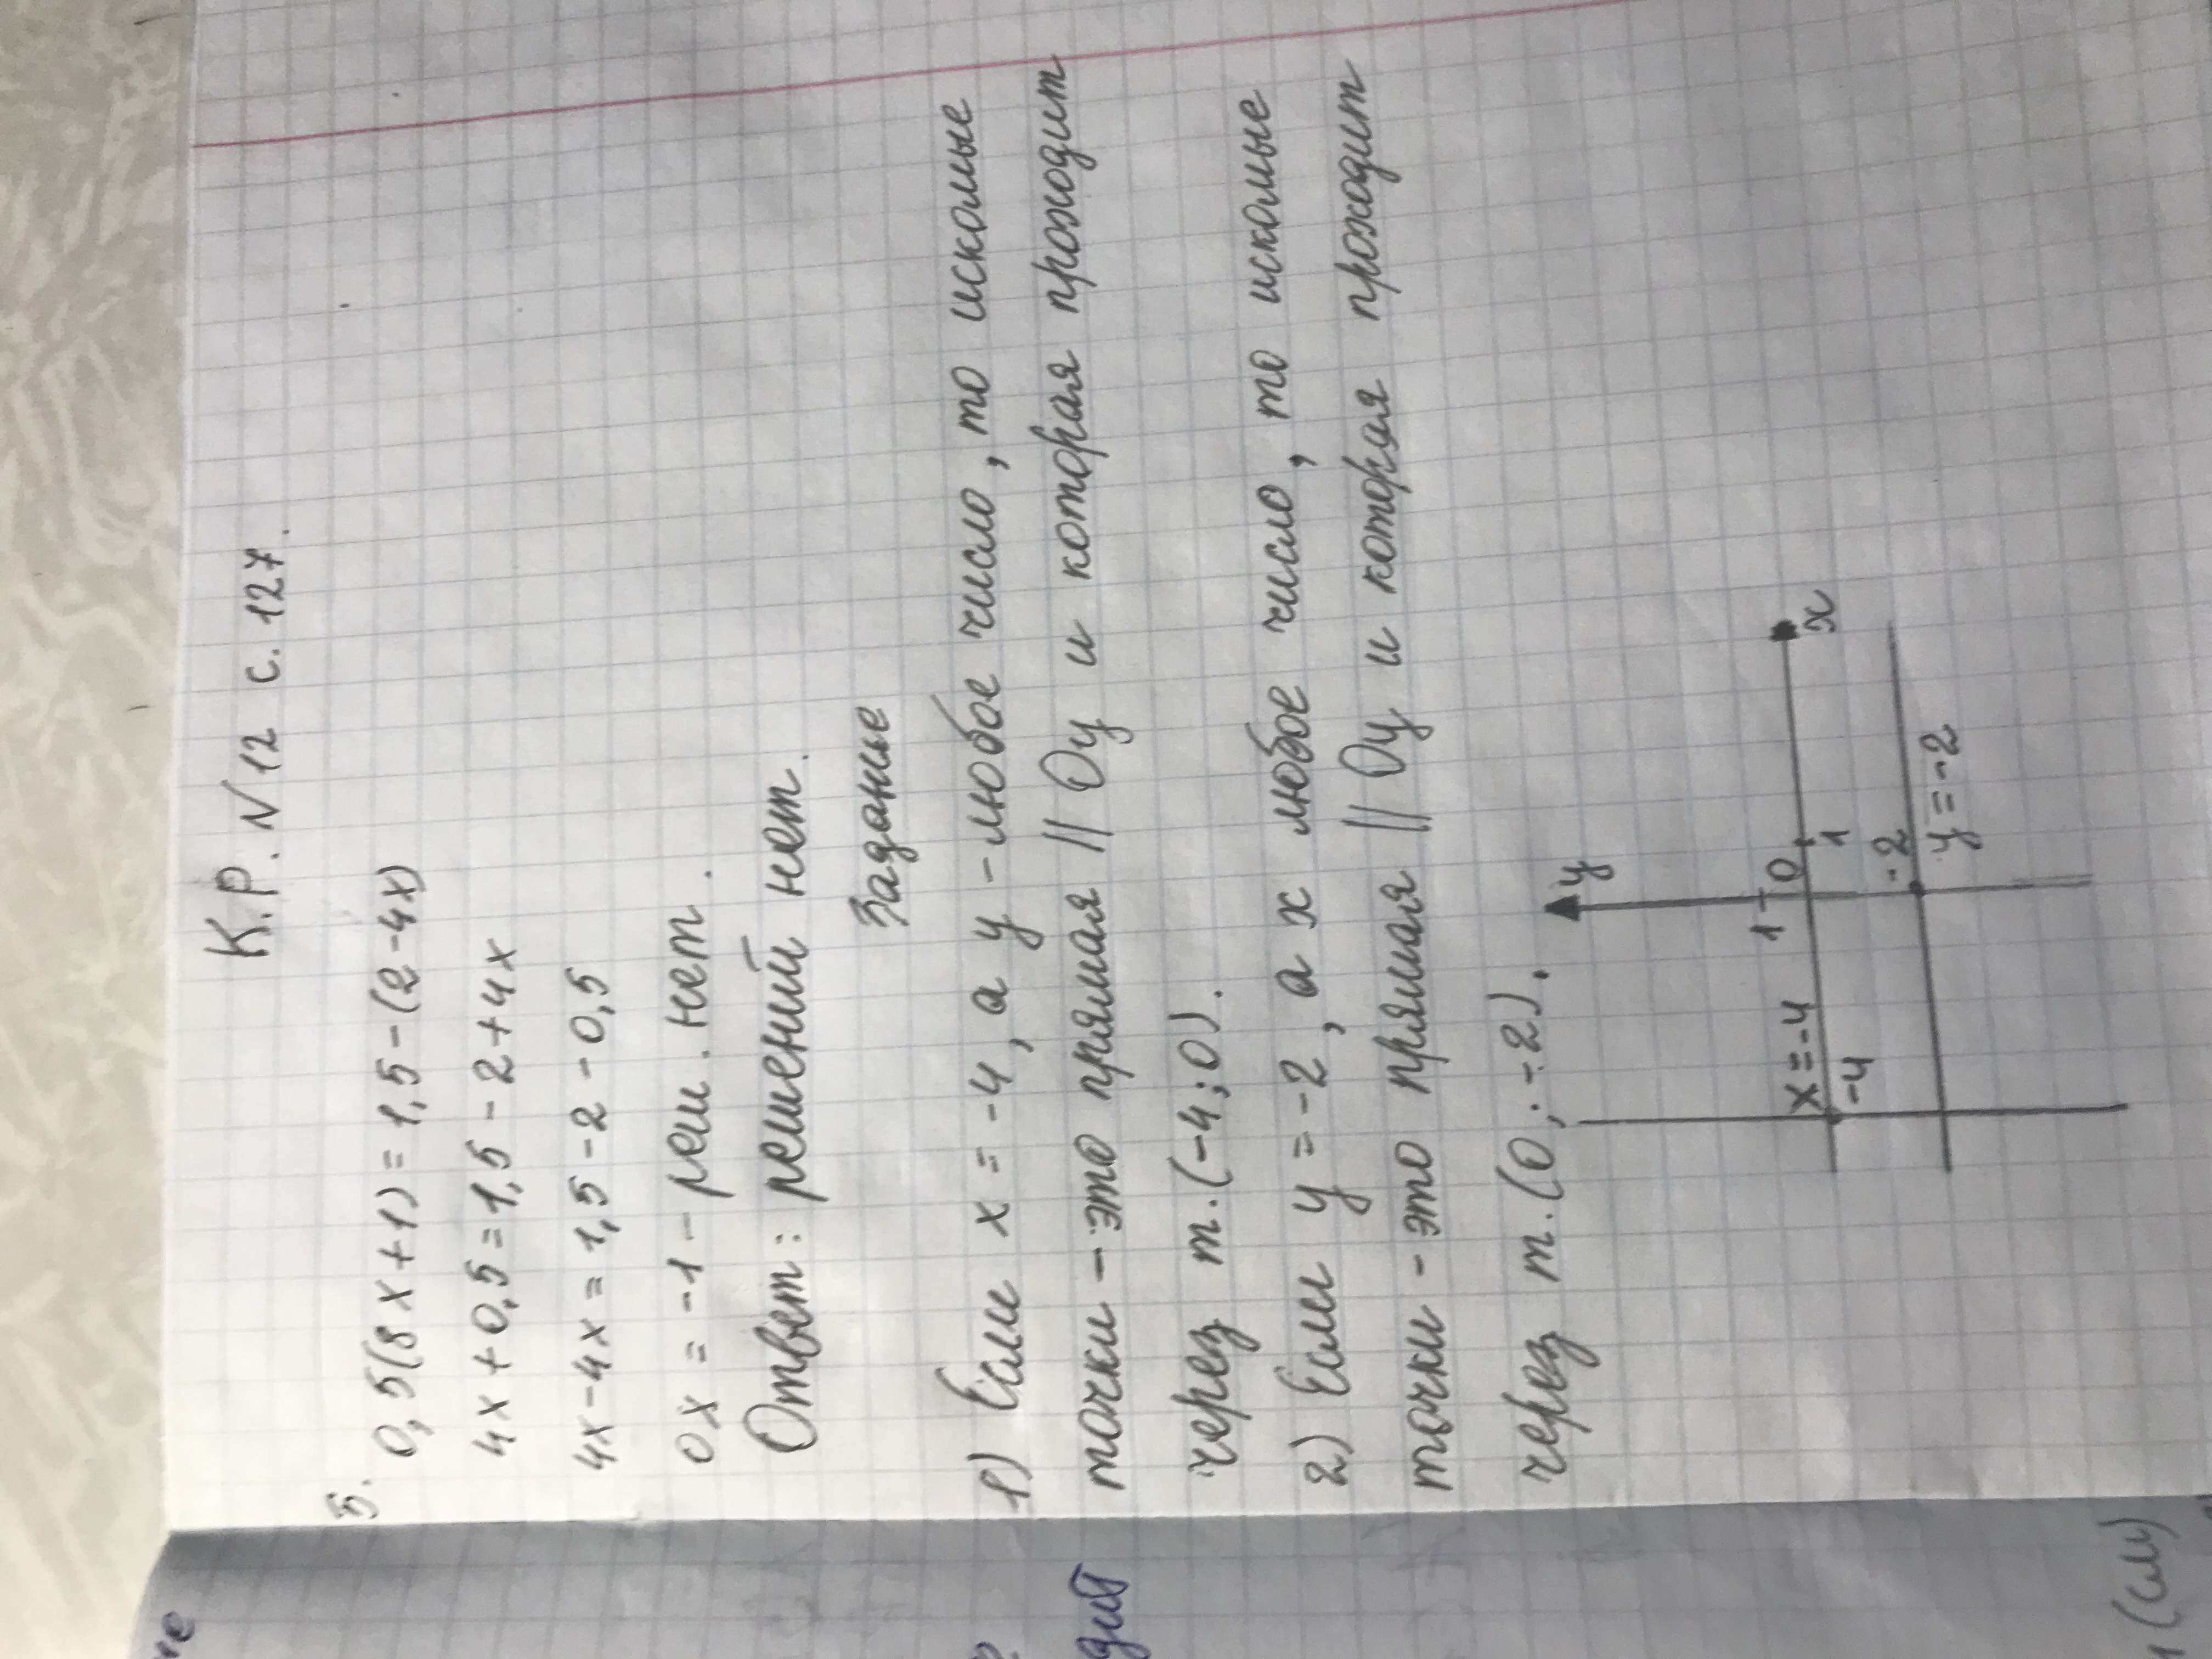 К.Р. N12 с. 127.
5.
0,5(8x+1)=1,5-(2-4x)
4x+0,5=1,5-2+4x
4x-4x=1,5-2-0,5
0x=-1 - реш. нет.
Ответ: решений нет.
Задание
1) Если x=-4, а y-любое число, то искомые
точки - это прямая || Oy и которая проходит
через т.(-4;0).
2) Если y=-2, а x любое число, то искомые
точки - это прямая || Oy и которая проходит
через т.(0;-2).
y
1
x=-4
0
x
-4
1
-2
y=-2
ие
дит
(см)